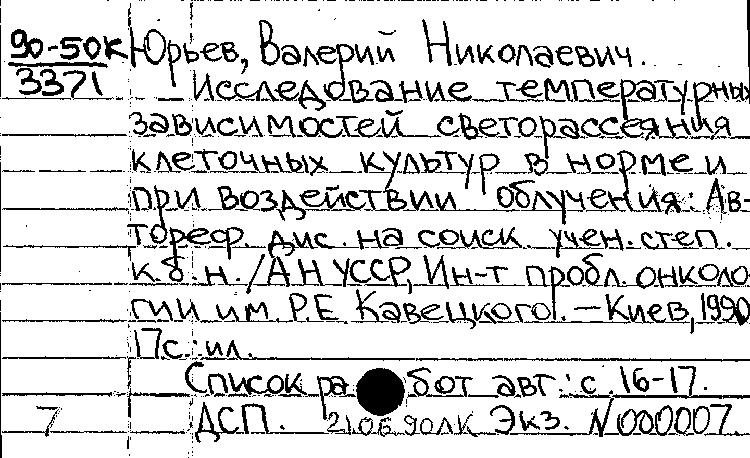 90-50К Юрьев, Валерий Николаевич.
3371 Исследование температурных
зависимостей светорассеяния
клеточных культур в норме и
при воздействии облучения: Ав-
тореф. дис. на соиск. учен. степ.
к.б.н. / АН УССР, Ин-т пробл. онколо
гии им. Р.Е. Кавецкого. – Киев, 1990
17с.: ил.
Список работ авт.: с. 16-17.
7 ДСП. 21.06.90ЛК Экз. N 000007.